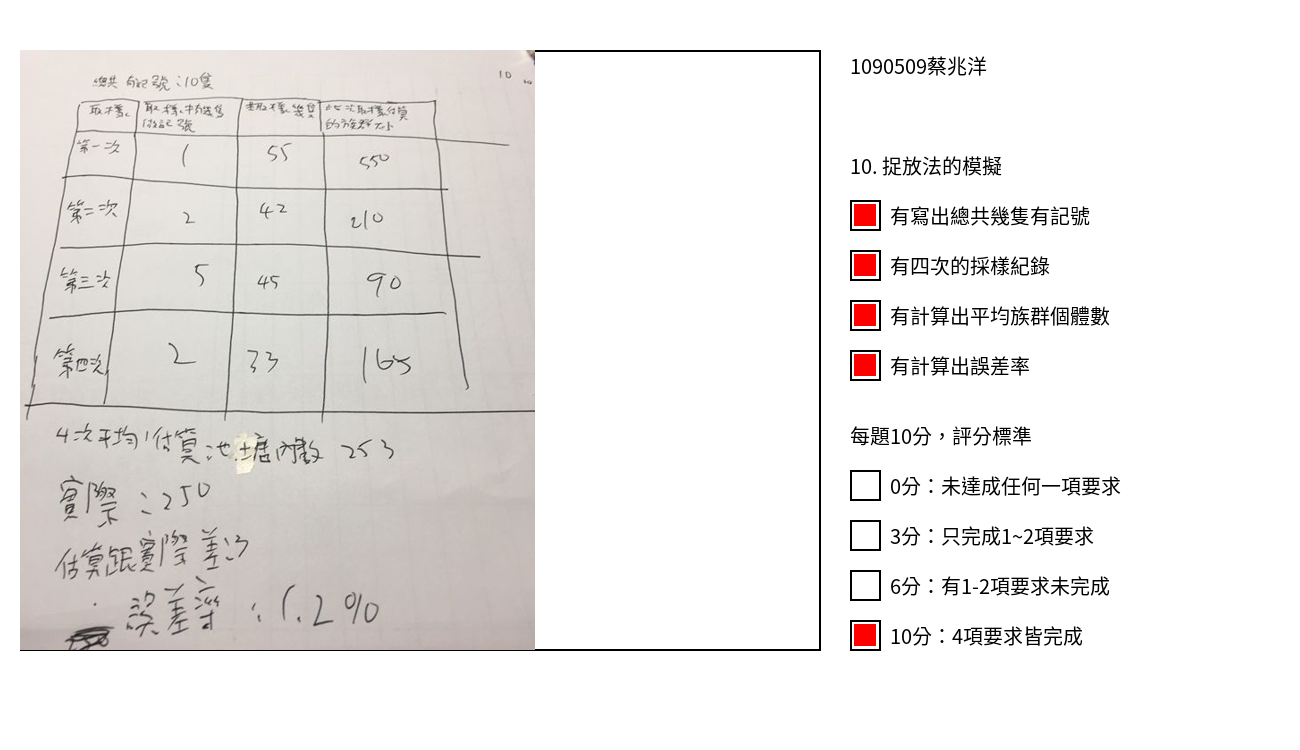 總共 有記號：10隻
10
取樣 取樣中有幾隻做記號 共取樣幾隻 此次取樣估算的族群大小
第一次 1 55 550
第二次 2 42 210
第三次 5 45 90
第四次 2 33 165
4次平均估算池塘內數 253
實際：250
估算跟實際差：3
誤差率：1.2%
1090509蔡兆洋
10. 捉放法的模擬
有寫出總共幾隻有記號
有四次的採樣紀錄
有計算出平均族群個體數
有計算出誤差率
每題10分，評分標準
0分：未達成任何一項要求
3分：只完成1~2項要求
6分：有1-2項要求未完成
10分：4項要求皆完成